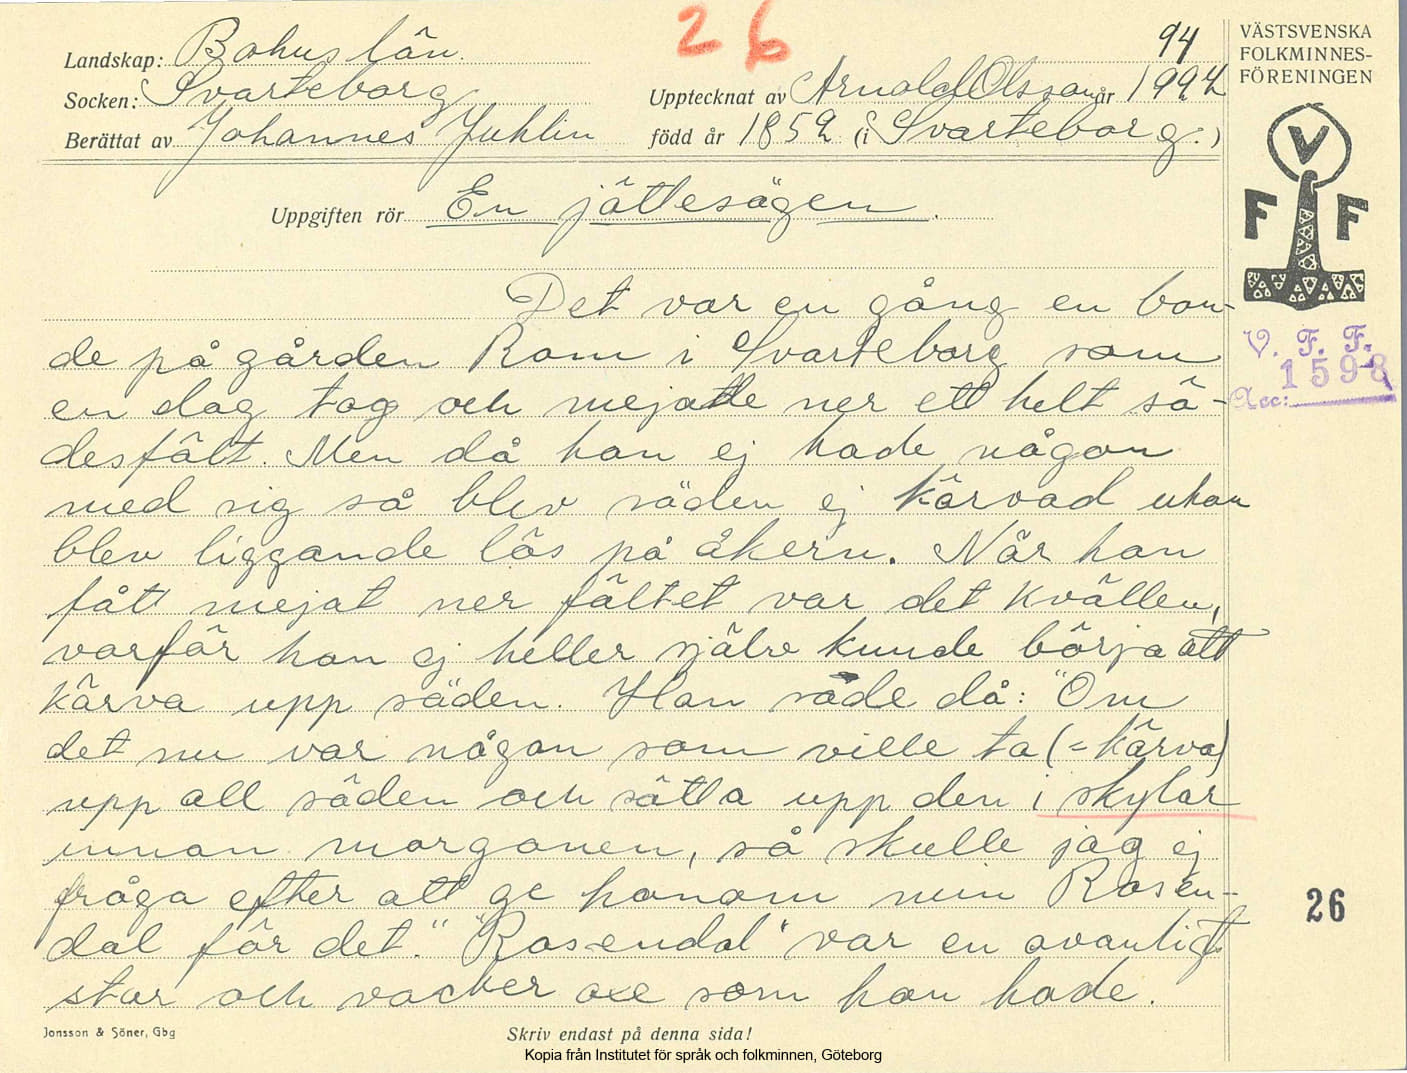 26
94
Landskap: Bohuslän.
Socken: Svarteborg
Upptecknat av Arnold Olsson år 1924
Berättat av Johannes Juhlin
född år 1852 (i Svarteborg.)
Uppgiften rör En jättesägen.
Det var en gång en bon-
de på gården Rom i Svarteborg som
en dag tog och mejade ner ett helt sä-
desfält. Men då han ej hade någon
med sig så blev säden ej kärvad utan
blev liggande lös på åkern. När han
fått mejat ner fältet var det kvällen,
varför han ej heller själv kunde börja att
kärva upp säden. Han sade då: "Om
det nu var någon som ville ta (= kärva)
upp all säden och sätta upp den i skylar
innan morgonen, så skulle jag ej
fråga efter att ge honom min Rosen-
dal för det." "Rosendal" var en ovanligt
stor och vacker oxe som han hade.
Jonsson & Söner, Gbg
Skriv endast på denna sida!
Kopia från Institutet för språk och folkminnen, Göteborg
VÄSTSVENSKA
FOLKMINNES-
FÖRENINGEN
V
F F
V. F. F.
1598
Acc:
26